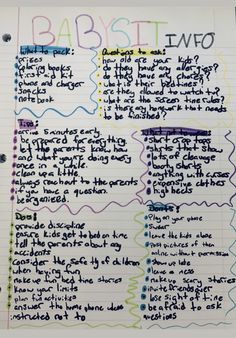 BABYSIT INFO
What to pack:
prizes
coloring books
first aid kit
phone and charger
snacks
note book
Questions to ask:
how old are your kids?
do they have any allergies?
do they have any chores?
when is their bedtime?
are they allowed to watch tv?
what are the screen time rules?
is there any homework that needs
to be finished?
Tips:
arrive 5 minutes early
be prepared for everything
let the parents know how
and what you're doing every
once in a while
clean up a little
always reach out to the parents
if you have a question
be organized.
What not to wear:
short crop tops
shirts that show
lots of cleavage
booty shorts
anything with curses
expensive clothes
high heels
Dos:
provide discipline
ensure kids get to bed on time
tell the parents about any
accidents
consider the safety of children
when having fun
make up fun bed time stories
know your limits
plan fun activities
answer the home phone ideas
instructed not to
Donts:
play on your phone
swear
leave the kids alone
post pictures of them
online without permission
show up late
leave a mess
make up scary stories
invite friends over
lose sight of time
be afraid to ask
questions